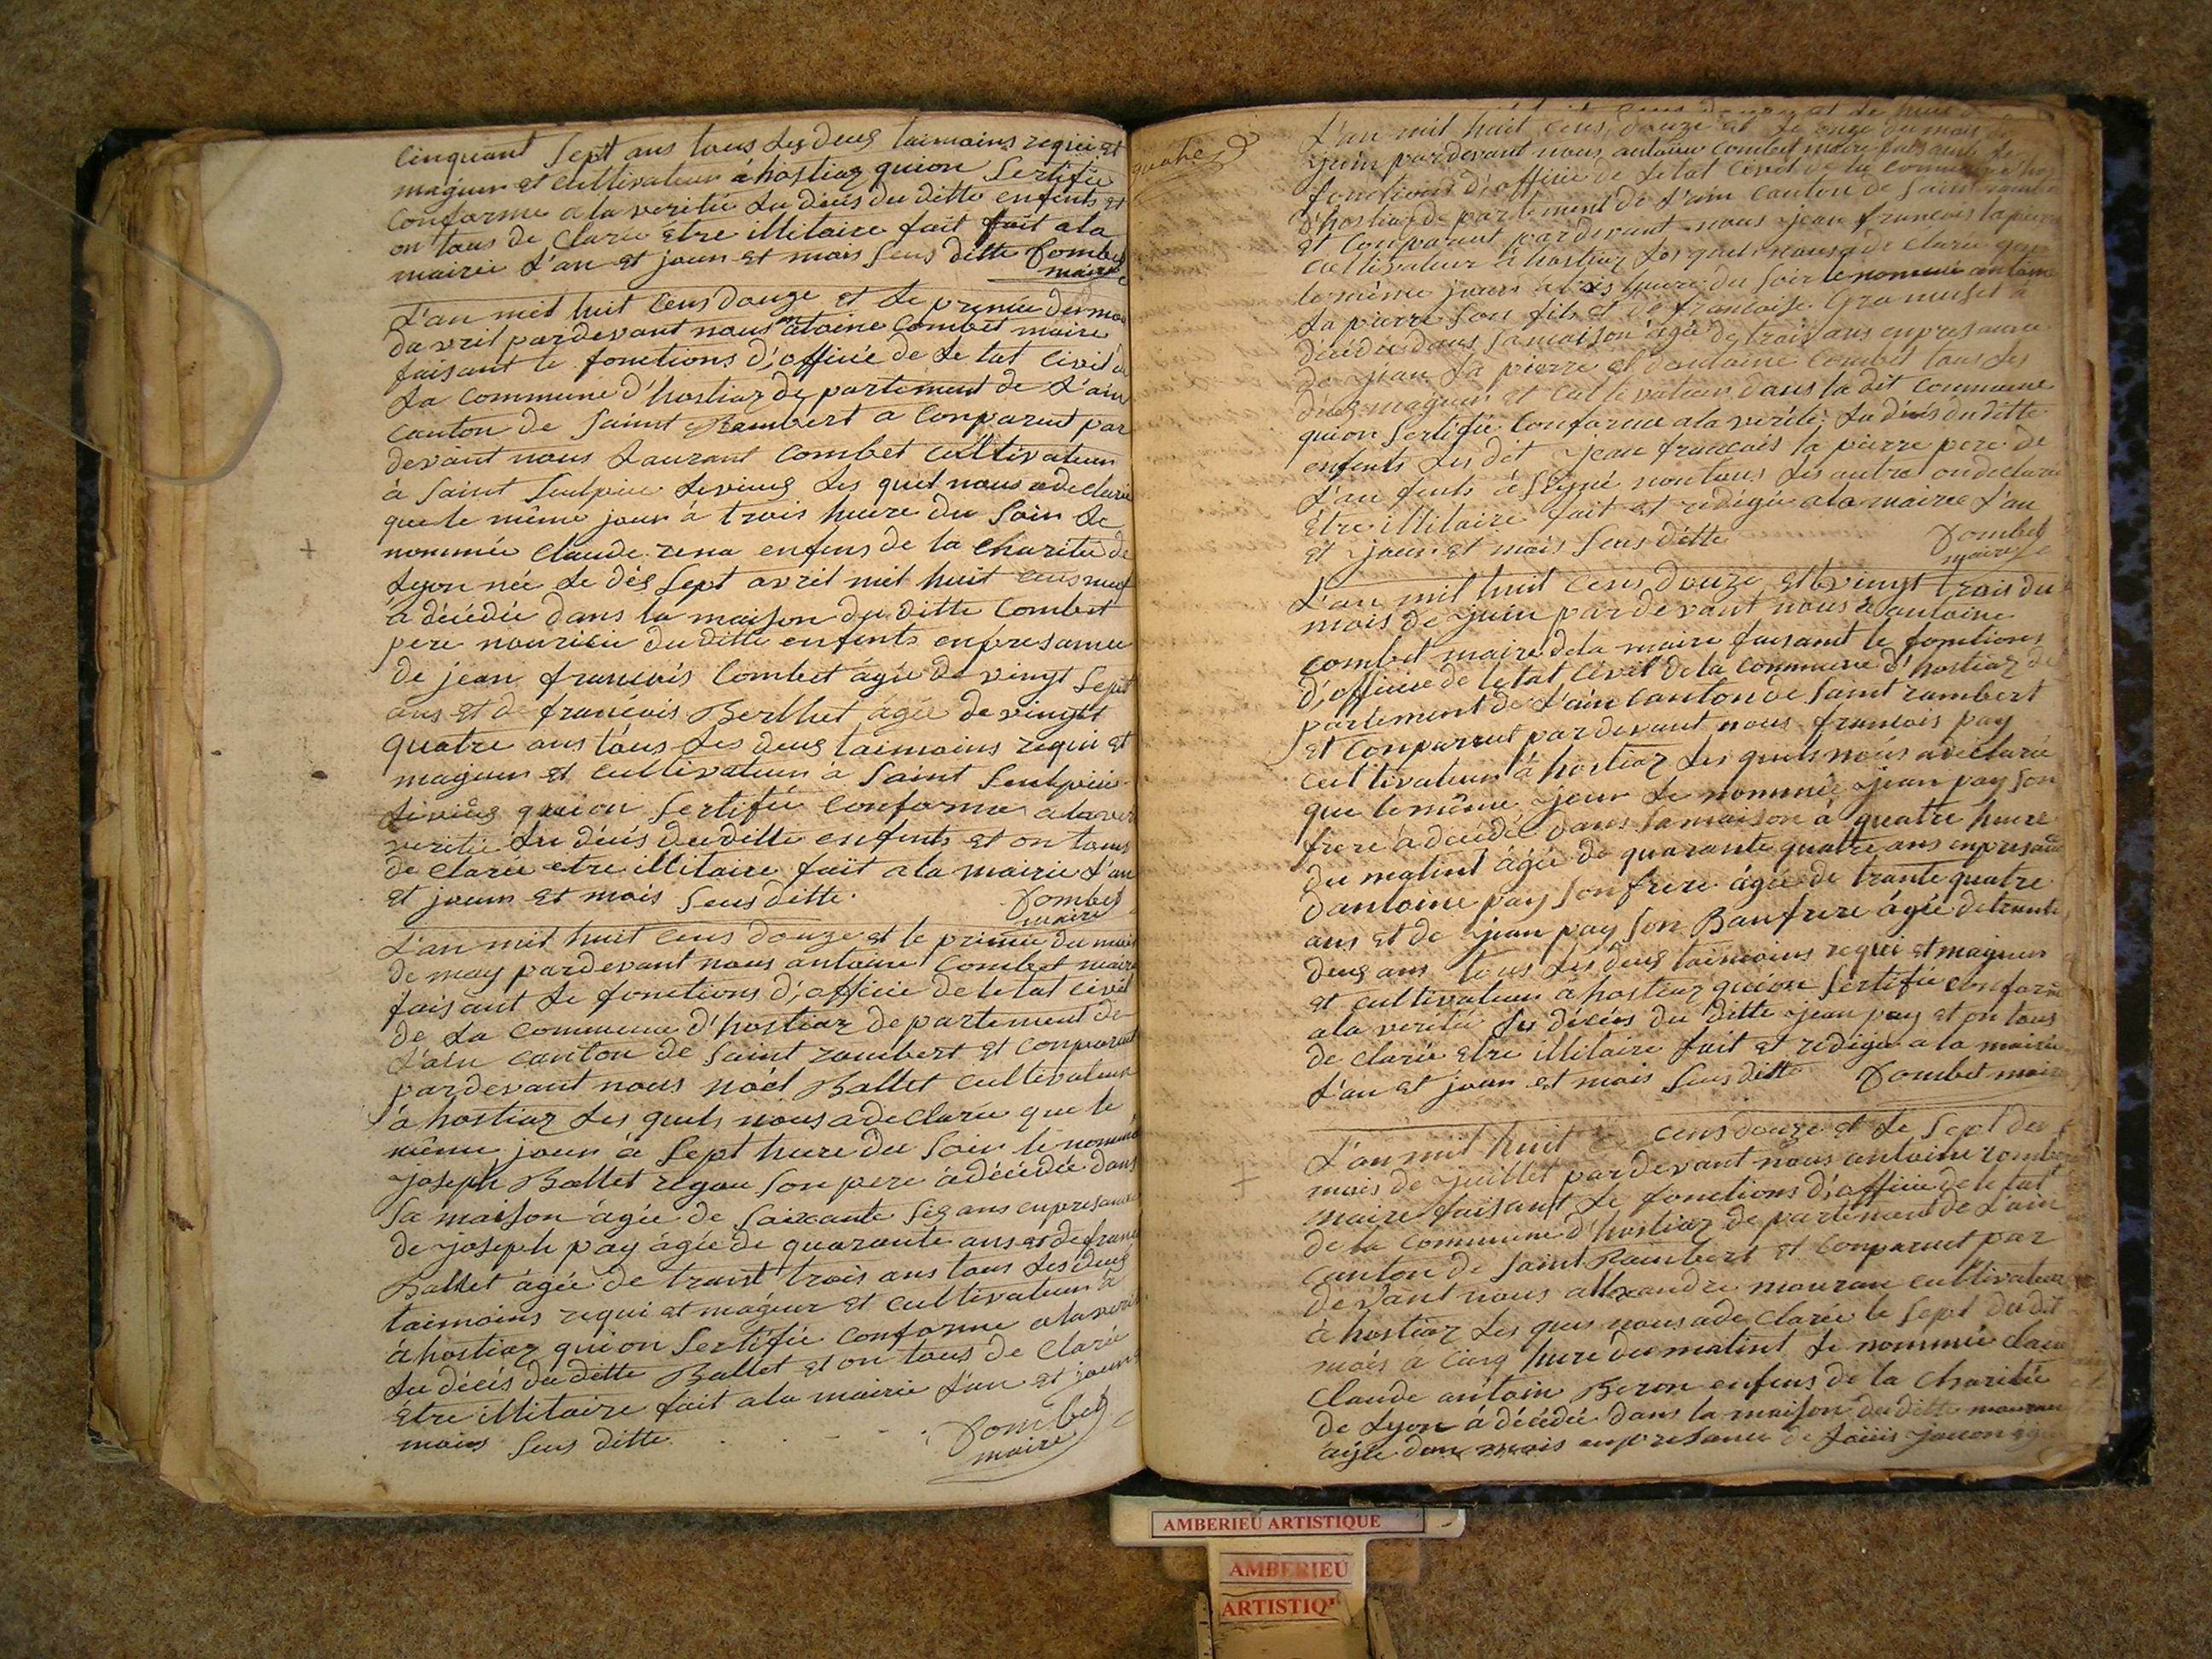 Cinquant Sept ans tous les deus taimoins requi et
majeur et Cultivateur à hostiaz quion Sertifié
Conforme a la verité du déces du ditte enfents et
on tous de Clarée etre illitaire fait fait a la
mairie L'an et jour et mois Sens ditte Combet
maire
L'an mil huit Cens douze et le premié du moi
davril pardevant nous antoine Combet maire
faisant le fonctions d'officié de Le tat Civil de
La Commune d'hostiaz de partement de L'ain
Canton de Saint Rambert a Conparut par
devant nous Laurant Combet Cultivateur
à Saint Seulpice Levieus Les quel nous adeclarée
que le même jour à trois heure du Soir Le
nommée Claude rena enfens de la Charitée de
Lyon née Le dés Sept avril mil huit Cens neuf
à décédée dans la maison du ditte Combet
pere nouricié du ditte enfents enpresance
de jean francois Combet ágée de vingt Sept
ans et de francois Berthet agée de vingtt
quatre ans tous Les deus taimoins requi et
majeur et Cultivateur à Saint Seulpice
Levieus quion Sertifié Conforme a la ver
verité du déces du ditte enfents et on tous
de Clarée etre illitaire fait a la mairie L'an
et jour et mois Sens ditte. Combet
maire
L'an mil huit Cens douze et le premié du mois
de may pardevant nous antoine Combet maire
faisant Le fonctions d'officié de letat Civil
de La Commune d'hostiaz departement de
L'ain Canton de Saint rambert et Conparut
pardevant nous noél Ballet Cultivateur
à hostiaz Les quels nous a de Clarée que le
même jour à Sept heure du Soir le nommé
joseph Ballet regau Son pere à décédée dans
Sa maison ágée de Soixante Sis ans enpresance
de joseph pay ágée de quarante ans et de franc
Ballet ágée de trant trois ans tous Les deus
taimoins requi et majeur et Cultivateur à
à hostiaz quion Sertifié Conforme a la verit
du décés du ditte Ballet et on tous de Clarée
Etre illitaire fait a la mairie L'an et jour
mois Sens ditte Combet
maire
quatre
L'an mil huit Cens douze et Le onze du mois de
juin pardevant nous antoine Combet maire faisant Le
fonctions d'officié de Letat Civil de la Commune
d'hostiaz de partement de L'ain Canton de Saint rambe
et Conparut pardevant nous jean francois lapierre
Cultivateur à hostiaz Les quel nous a de Clarée que
le même jour à trois heure du Soir le nommée antoine
La pierre Son fils et de francoise Gramuset à
décédée dans Sa maison agée de trois ans enpresance
de jean La pierre et dantoine Combet tous Les
deus majeur et Cultivateur dans la dit Commune
quion Sertifié Conforme a la verité du décés du ditte
enfents Les dit jean francois la pierre pere de
L'en fents à Signé non tous Les autre ondeclarée
Etre illitaire fait et redigée a la mairie L'an
et jour et mois Sens ditte Combet
maire
L'an mil huit Cens douze et le vingt trois du
mois de juin pardevant nous antoine
Combet maire de la maire faisant le fonctions
d'officié de Letat Civil de la Commune d'hostiaz de
partement de L'ain Canton de Saint rambert
et Conparut pardevant nous francois pay
Cultivateur à hostiaz Les quels nous adeClarée
que le même jour Le nommée jean pay Son
frere à décédée dans Sa maison à quatre heure
du matint ágée de quarante quatre ans enpresance
dantoine pay Son frere ágée de trante quatre
ans et de jean pay Son Baufrere ágée de trante
deus ans tous Les deus taimoins requi et majeur
et Cultivateur à hostiaz quion Sertifié Conforme
a la verité du décées du ditte jean pay et on tous
de Clarée Etre illitaire fait et redigée a la mairie
L'an et jour et mois Sens ditte Combet maire
L'an mil huit Cens douze et Le Sept du
mois de juillet pardevant nous antoine Combet
maire faisant Le fonctions d'officié de le tat
de la Commune d'hostiaz de partement de L'ain
Canton de Saint Rambert et Conparut par
devant nous allexandre mouran Cultivateur
à hostiaz Les quel nous a de Clarée le Sept du dit
mois à Cinq heure du matint Le nommée Clau
Claude antoin Beron enfens de la Charitée
de Lyon à décédée dans la maison du ditte mouran
enpresance de